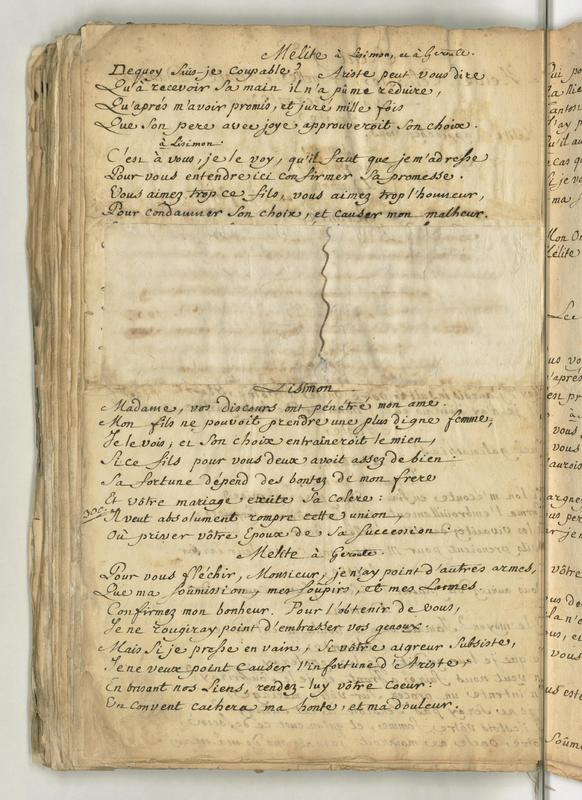 Mélite à Lisimon, et à Geronte.
Dequoy suis-je coupable? Ariste peut vous dire
Qu'à recevoir sa main il n'a pû me reduire,
Qu'aprés m'avoir promis, et juré mille fois
Que son pere avec joye approuveroit son choix.
à Lisimon.
C'est à vous, je le voy, qu'il faut que je m'adresse
Pour vous entendre ici confirmer sa promesse.
Vous aimez trop ce fils, vous aimez trop l'honneur,
Pour condamner son choix, et causer mon malheur.
Lisimon
Madame, vos discours ont pénétré mon ame.
Mon fils ne pouvoit prendre une plus digne femme;
Je le vois; et son choix entraîneroit le mien,
Si ce fils pour vous deux avoit assez de bien.
Sa fortune dépend des bontez de mon frere
Et vôtre mariage excite sa colere:
Il veut absolument rompre cette union,
Ou priver vôtre Epoux de sa succession.
Mélite à Geronte.
Pour vous fléchir, Monsieur, je n'ay point d'autres armes,
Que ma soûmission, mes soûpirs, et mes larmes
Confirmez mon bonheur. Pour l'obtenir de vous,
Je ne rougiray point d'embrasser vos genoux.
Mais si je presse en vain, si vôtre aigreur subsiste,
Je ne veux point causer l'infortune d'Ariste;
En brisant nos liens, rendez-luy vôtre coeur:
Un Convent cachera ma honte, et ma douleur.